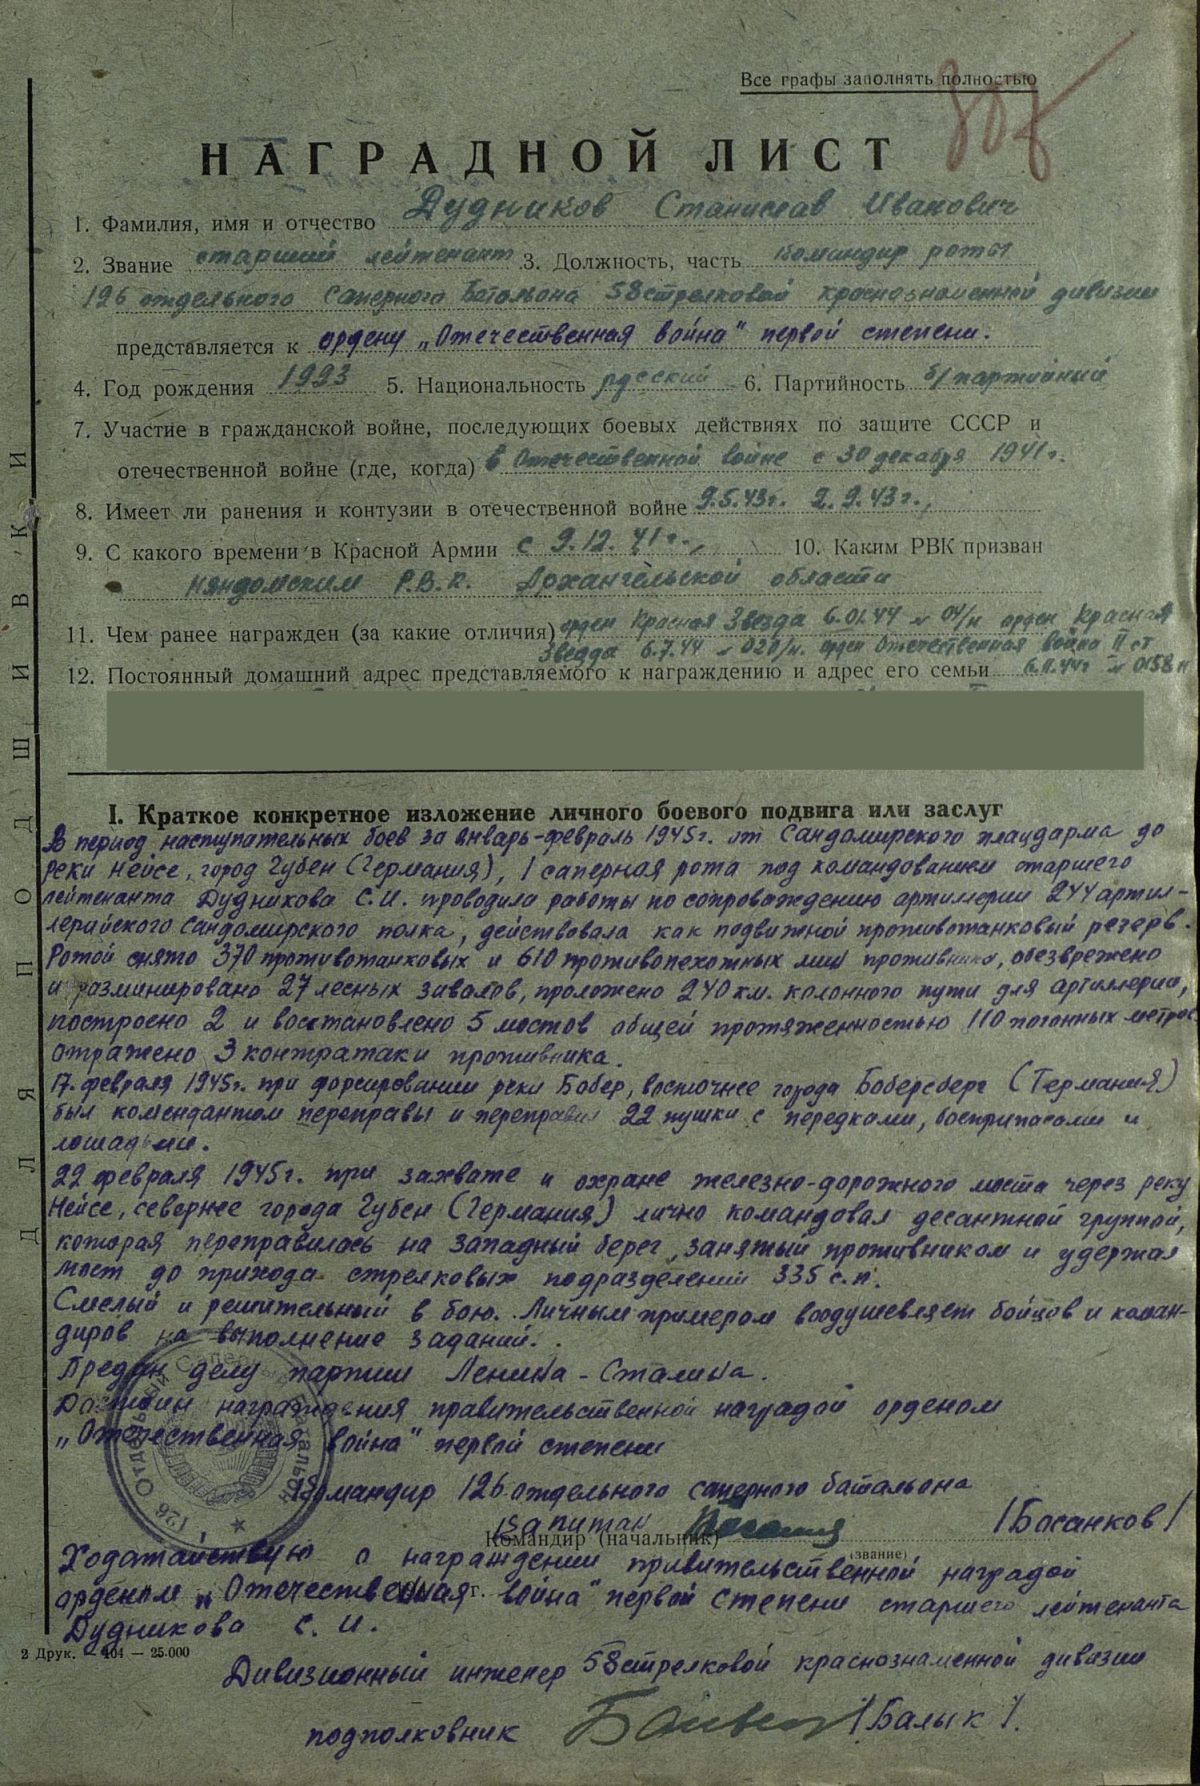 Все графы заполнять полностью
307
НАГРАДНОЙ ЛИСТ
1. Фамилия, имя и отчество Дудников Станислав Иванович
2. Звание старший лейтенант 3. Должность, часть командир роты
126 отдельного Саперного Батальона 58 стрелковой краснознаменной дивизии
представляется к ордену „Отечественная война" первой степени.
4. Год рождения 1923 5. Национальность русский 6. Партийность б/партийный
7. Участие в гражданской войне, последующих боевых действиях по защите СССР и
отечественной войне (где, когда) в Отечественной войне с 30 декабря 1941г.
8. Имеет ли ранения и контузии в отечественной войне 9.5.43г. 2.9.43г.,
9. С какого времени в Красной Армии с 9.12.41г., 10. Каким РВК призван
Няндомским Р.В.К. Архангельской области
11. Чем ранее награжден (за какие отличия) орден Красная Звезда 6.01.44 № 04/н орден Красная
Звезда 6.7.44 № 020/н. орден Отечественная война II ст
12. Постоянный домашний адрес представляемого к награждению и адрес его семьи 6.11.44г № 0158 н
I. Краткое конкретное изложение личного боевого подвига или заслуг
В период наступательных боев за январь-февраль 1945г. от Сандомирского плацдарма до
реки Нейсе, город Губен (Германия), 1 саперная рота под командованием старшего
лейтенанта Дудникова С.И. проводила работы по сопровождению артиллерии 244 артил-
лерийского Сандомирского полка, действовала как подвижной противотанковый резерв.
Ротой снято 370 противотанковых и 610 противопехотных мин противника, обезврежено
и разминировано 27 лесных завалов, проложено 240 км. колонного пути для артиллерии,
построено 2 и восстановлено 5 мостов общей протяженностью 110 погонных метров
отражено 3 контратаки противника.
17. февраля 1945г. при форсировании реки Бобер, восточнее города Боберсберг (Германия)
был комендантом переправы и переправил 22 пушки с передками, боеприпасами и
лошадьми.
22 февраля 1945г. при захвате и охране железно-дорожного моста через реку
Нейсе, севернее города Губен (Германия) лично командовал десантной группой,
которая переправилась на западный берег, занятый противником и удержал
мост до прихода стрелковых подразделений 335 с.п.
Смелый и решительный в бою. Личным примером воодушевляет бойцов и коман-
диров на выполнение заданий.
Предан делу партии Ленина - Сталина.
Достоин награждения правительственной наградой орденом
„Отечественная война" первой степени
Командир 126 отдельного саперного батальона
капитан /Босанков/
Командир (начальник)
(звание)
Ходатайствую о награждении правительственной наградой
орденом „Отечественная война" первой степени старшего лейтенанта
г.
Дудникова С. И.
2 Друк. — 404 — 25.000
Дивизионный инженер 58 стрелковой краснознаменной дивизии
подполковник /Балык/.
ДЛЯ ПОДШИВКИ
126 Отдельный Саперный Батальон